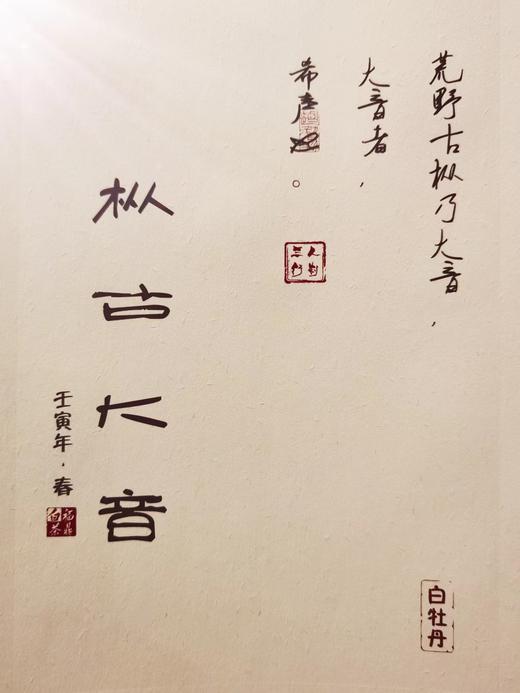 荒野古枞乃大音，
大音者，
希声也。
枞古大音
壬寅年·春
福鼎
白茶
白牡丹